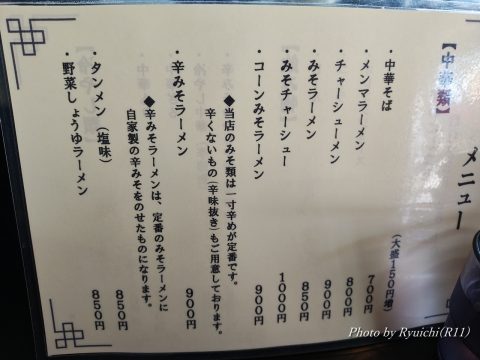 メニュー
【中華類】
（大盛150円増）
・中華そば 700円
・メンマラーメン 800円
・チャーシューメン 900円
・みそラーメン 850円
・みそチャーシュー 1000円
・コーンみそラーメン 900円
◆当店のみそ類は一寸辛めが定番です。
辛くないもの（辛味抜き）もご用意しております。
・辛みそラーメン 900円
◆辛みそラーメンは、定番のみそラーメンに
自家製の辛みそをのせたものになります。
・タンメン（塩味） 850円
・野菜しょうゆラーメン 850円
Photo by Ryuichi(R11)